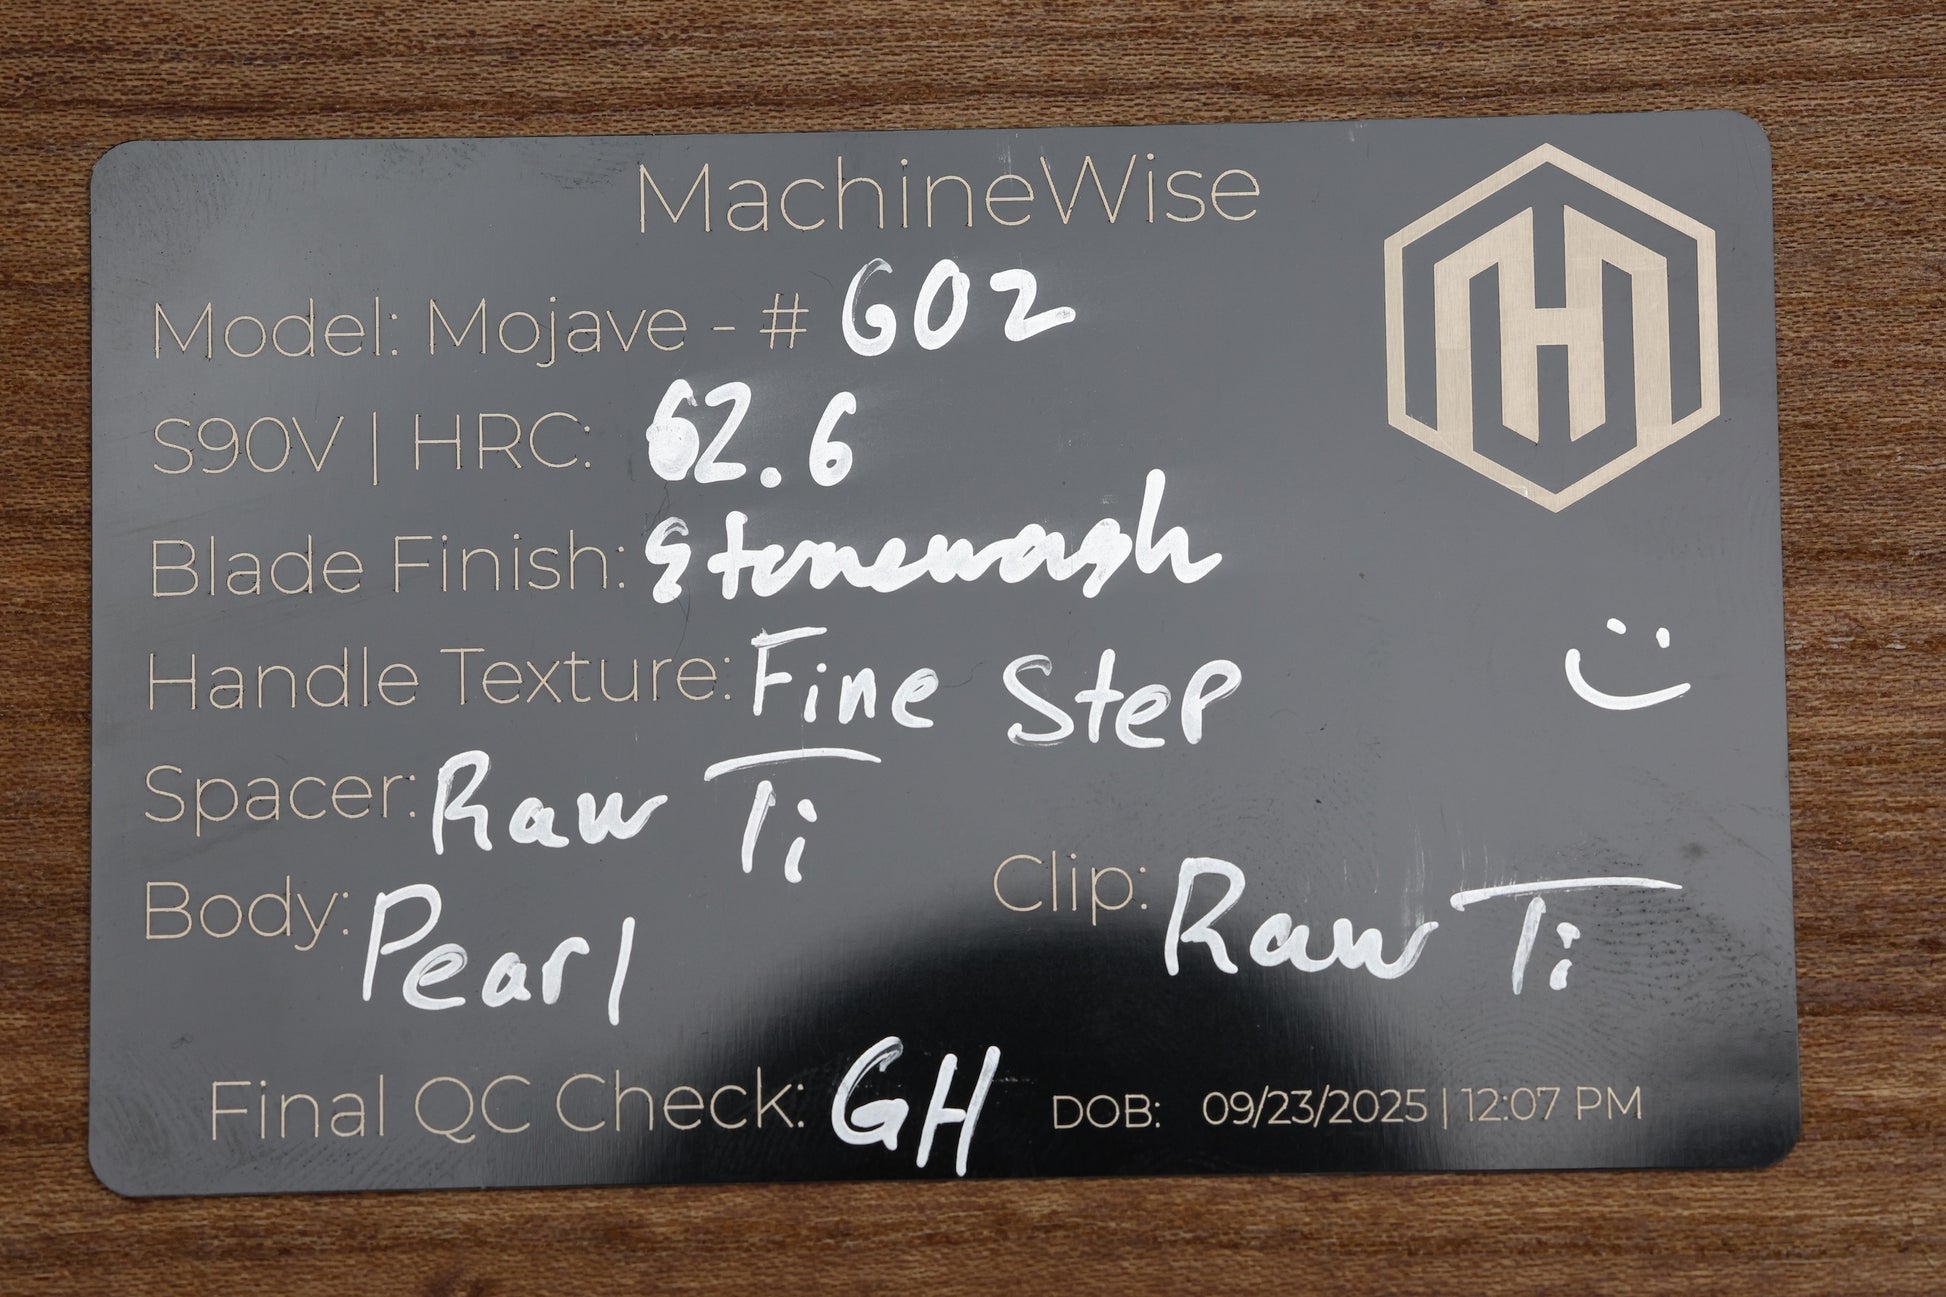 MachineWise
Model: Mojave - # 602
S90V | HRC: 62.6
Blade Finish: Stonewash
Handle Texture: Fine Step
Spacer: Raw Ti
Body: Pearl
Clip: Raw Ti
Final QC Check: GH
DOB: 09/23/2025 | 12:07 PM